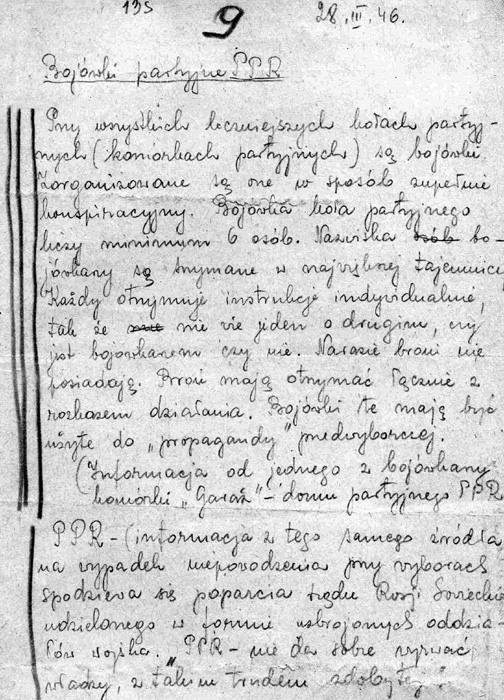 195
9
28.III.46.
Bojówki partyjne PPR
Przy wszystkich liczniejszych kołach partyj-
nych (komórkach partyjnych) są bojówki
Zorganizowane są one w sposób zupełnie
konspiracyjny. Bojówka koła partyjnego
liczy minimum 6 osób. Nazwiska osób bo-
jówkarzy są trzymane w największej tajemnicy
Każdy otrzymuje instrukcje indywidualnie,
tak że nie wie jeden o drugim, czy
jest bojówkarzem czy nie. Narazie broni nie
posiadają. Broń mają otrzymać łącznie z
rozkazem działania. Bojówki te mają być
użyte do „propagandy" przedwyborczej.
(Informacja od jednego z bojówkarzy
komórki „Garaż" - domu partyjnego PPR
PPR - (informacja z tego samego źródła
na wypadek niepowodzenia przy wyborach
spodziewa się poparcia rządu Rosji Sowieckie
udzielonego w formie uzbrojonych oddzia-
łów wojska. „PPR - nie da sobie wyrwać
władzy, z takim trudem zdobytej".